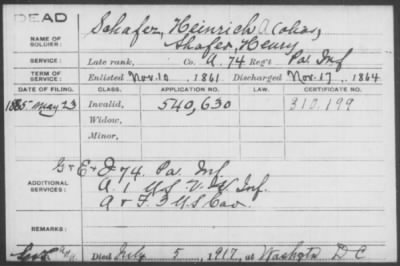 DEAD
NAME OF SOLDIER:
Schafer, Heinrich (alias)
Shafer, Henry
SERVICE:
Late rank, Co. A. 74 Reg't Pa. Inf
TERM OF SERVICE:
Enlisted Nov. 10, 1861 Discharged Nov. 17, 1864
DATE OF FILING. CLASS. APPLICATION NO. LAW. CERTIFICATE NO.
1885 May 23 Invalid, 540,630 310,199
Widow,
Minor,
ADDITIONAL SERVICES:
G & E & I 74. Pa. Inf
A. 1 U.S. V. V. Inf.
A & F. 3 U.S. Cav.
REMARKS:
Died July 5, 1917, at Washgtn D C